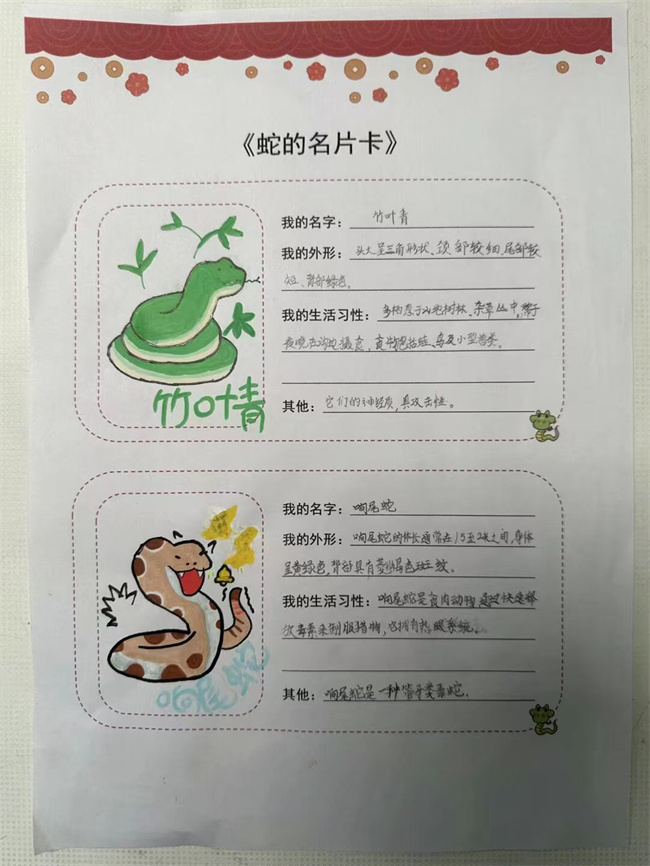 《蛇的名片卡》
我的名字：竹叶青
我的外形：头大呈三角形状、颈部较细、尾部较
短、背部绿色。
我的生活习性：多栖息于山地树林、杂草丛中，常于
夜晚在沟边摄食，食物包括蛙、鸟及小型兽类。
其他：它们的神经质，具攻击性。
竹叶青
我的名字：响尾蛇
我的外形：响尾蛇的体长通常在1.5至2米之间，身体
呈黄绿色，背部具有菱形褐色斑纹。
我的生活习性：响尾蛇是食肉动物 通过快速释
放毒素来制服猎物，它拥有热眼系统。
其他：响尾蛇是一种管牙类毒蛇.
响尾蛇